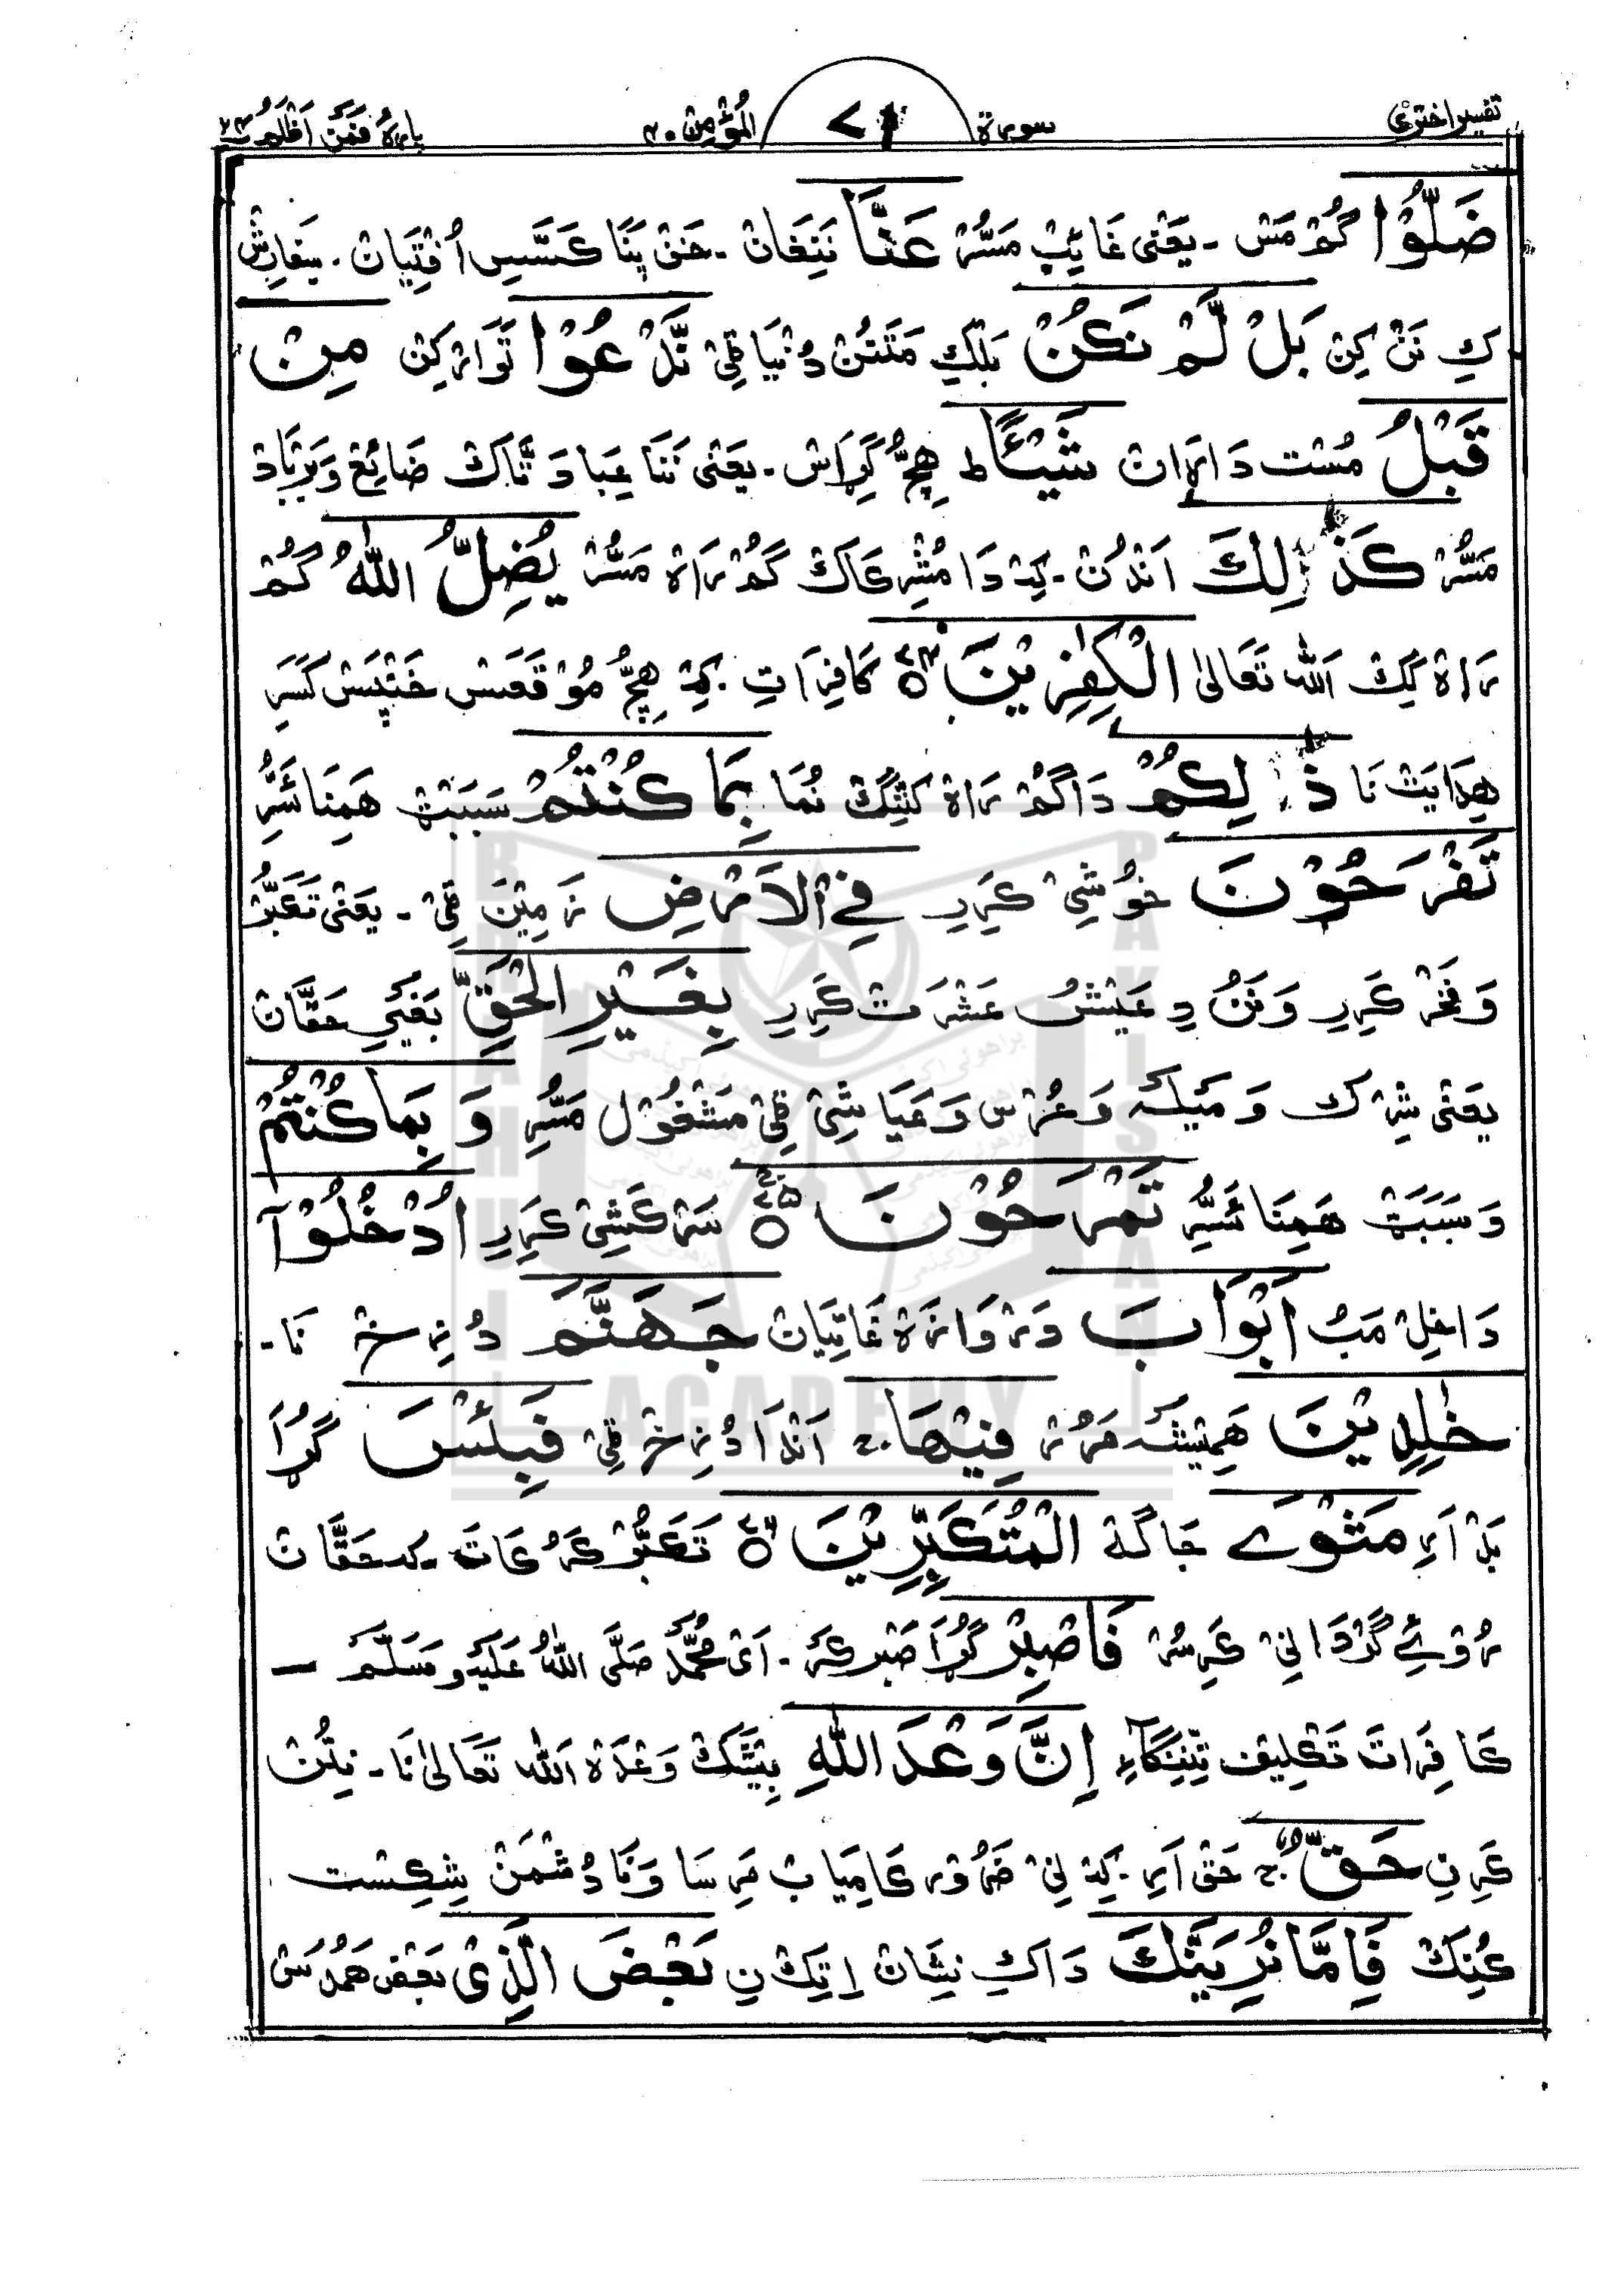 تفسیر اختری سورة ۷۱ المؤمن ۴۰ پارہ فمن اظلم ۲۴
ضَلُّوْا گُم مَس ـ یعنی غائِب مَسُّر عَنَّا نَنغَان ـ خَن پَنَا کَسَّس اُفتِیَان ـ سِفارِش
کِ نَن کِن بَلْ لَّمْ نَكُنْ بَلکِ مَتَنُن دُنیَا ٹی نَّدْعُوْا تَوَار کِن مِنْ
قَبْلُ مُست دَاڑَان شَیْئًا ط ہِچُّ گِڑَاس ـ یعنی نَنَا عِبادَ تَّاک ضَائِع وَ بَربَاد
مَسُّر كَذٰلِكَ اَندُن ـ کِہ دَا مُشرِکَاک گُم رَاہ مَسُّر یُضِلُّ اللهُ گُم
رَاہ کِک اَللہ تَعَالیٰ الْكٰفِرِیْنَ ۷۴ کَافِرَاتِ ـ کِہ ہِچُّ مُوْقَعَس خَنپَس کَسَرِ
ہِدَایَت نَا ذٰلِكُمْ دَا گُم رَاہ کَنِّنگ نُمَا بِمَا كُنْتُمْ سَبَبَت ہَمِنَا ئَسُّرِ
تَفْرَحُوْنَ خُوشِی کَرِرِ فِی الْاَرْضِ زَمِیْن ٹی ـ یعنی تَکَبُّر
وَ فَخَر کَرِرِ وَ نَنُ دِ عَیْش عَشرَت کَرِرِ بِغَیْرِ الْحَقِّ بَغَیرِ حَقَّان
یعنی شِرک وَ مَیلَہ وَ عُرس وَ عَیَاشِی ٹی مَشغُول مَسُّرِ وَ بِمَا كُنْتُمْ
وَ سَبَبَت ہَمِنَا ئَسُّرِ تَمْرَحُوْنَ ۷۵ سَر کَشِی کَرِرِ اُدْخُلُوْۤا
دَاخِل مَبُ اَبْوَابَ دَروَازَہ غَاتِیَان جَهَنَّمَ دُزِخ نَا ـ
خٰلِدِیْنَ ہَمِیشَہ مَرُر فِیْهَا ج اَندَا دُزِخ ٹی فَبِئْسَ گُڑَا
بَل اَرِ مَثْوَی جَاگہ الْمُتَكَبِّرِیْنَ ۷۶ تَکَبُّر کَرُکَاتَ ـ کہ حَقَّان
رُوئے گَردَانِی کَرِسُر فَاصْبِرْ گُڑَا صَبر کَر ـ اَی مُحَمَّد صَلَّی اللہُ عَلَیہِ وَسَلَّم —
کَافِرَاتَ تَکلِیف تِنِنگَاءِ اِنَّ وَعْدَ اللهِ بیشَّک وَعدَہ اَللہ تَعَالیٰ نَا ـ نِتُن
کَرِن حَقٌّ ج حَق اَرِ ـ کِہ نِی ضَرُور کَامِیَاب مَرِسَا وَ نَا دُشمَن شِکِست
کُنِک فَاِمَّا نُرِیَنَّكَ دَاکِ نِشَان اِتِک نِ بَعْضَ الَّذِیْ بَعض ہَمدُ سَس
BRAHUI ACADEMY PAKISTAN